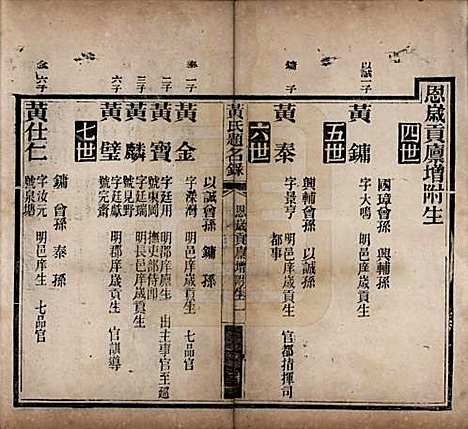 恩歲貢廩增附生
四世
國璋曾孫 興輔孫
黃鏞 字大鳴 明邑庠歲貢生
以誠一子
五世
興輔曾孫 以誠孫
黃泰 字景亨 明邑庠歲貢生 官都指揮司都事
鏞 子
六世
黃氏題名錄
恩歲貢廩增附生
以誠曾孫 鏞孫
黃金 字溧灣 明邑庠生 七品官
泰一子
黃寶 字廷用 明郡庠廩生 由主事官至巡撫吏部侍郎
號東岡
二子
黃麟 字廷瑞 明長邑庠歲貢生
號見野
三子
黃璧 字廷獻 明郡庠歲貢生 官訓導
號完齋
六子
七世
鏞曾孫 泰孫
黃仕仁 字汝元 明邑庠生 七品官
號泉塘
金六子